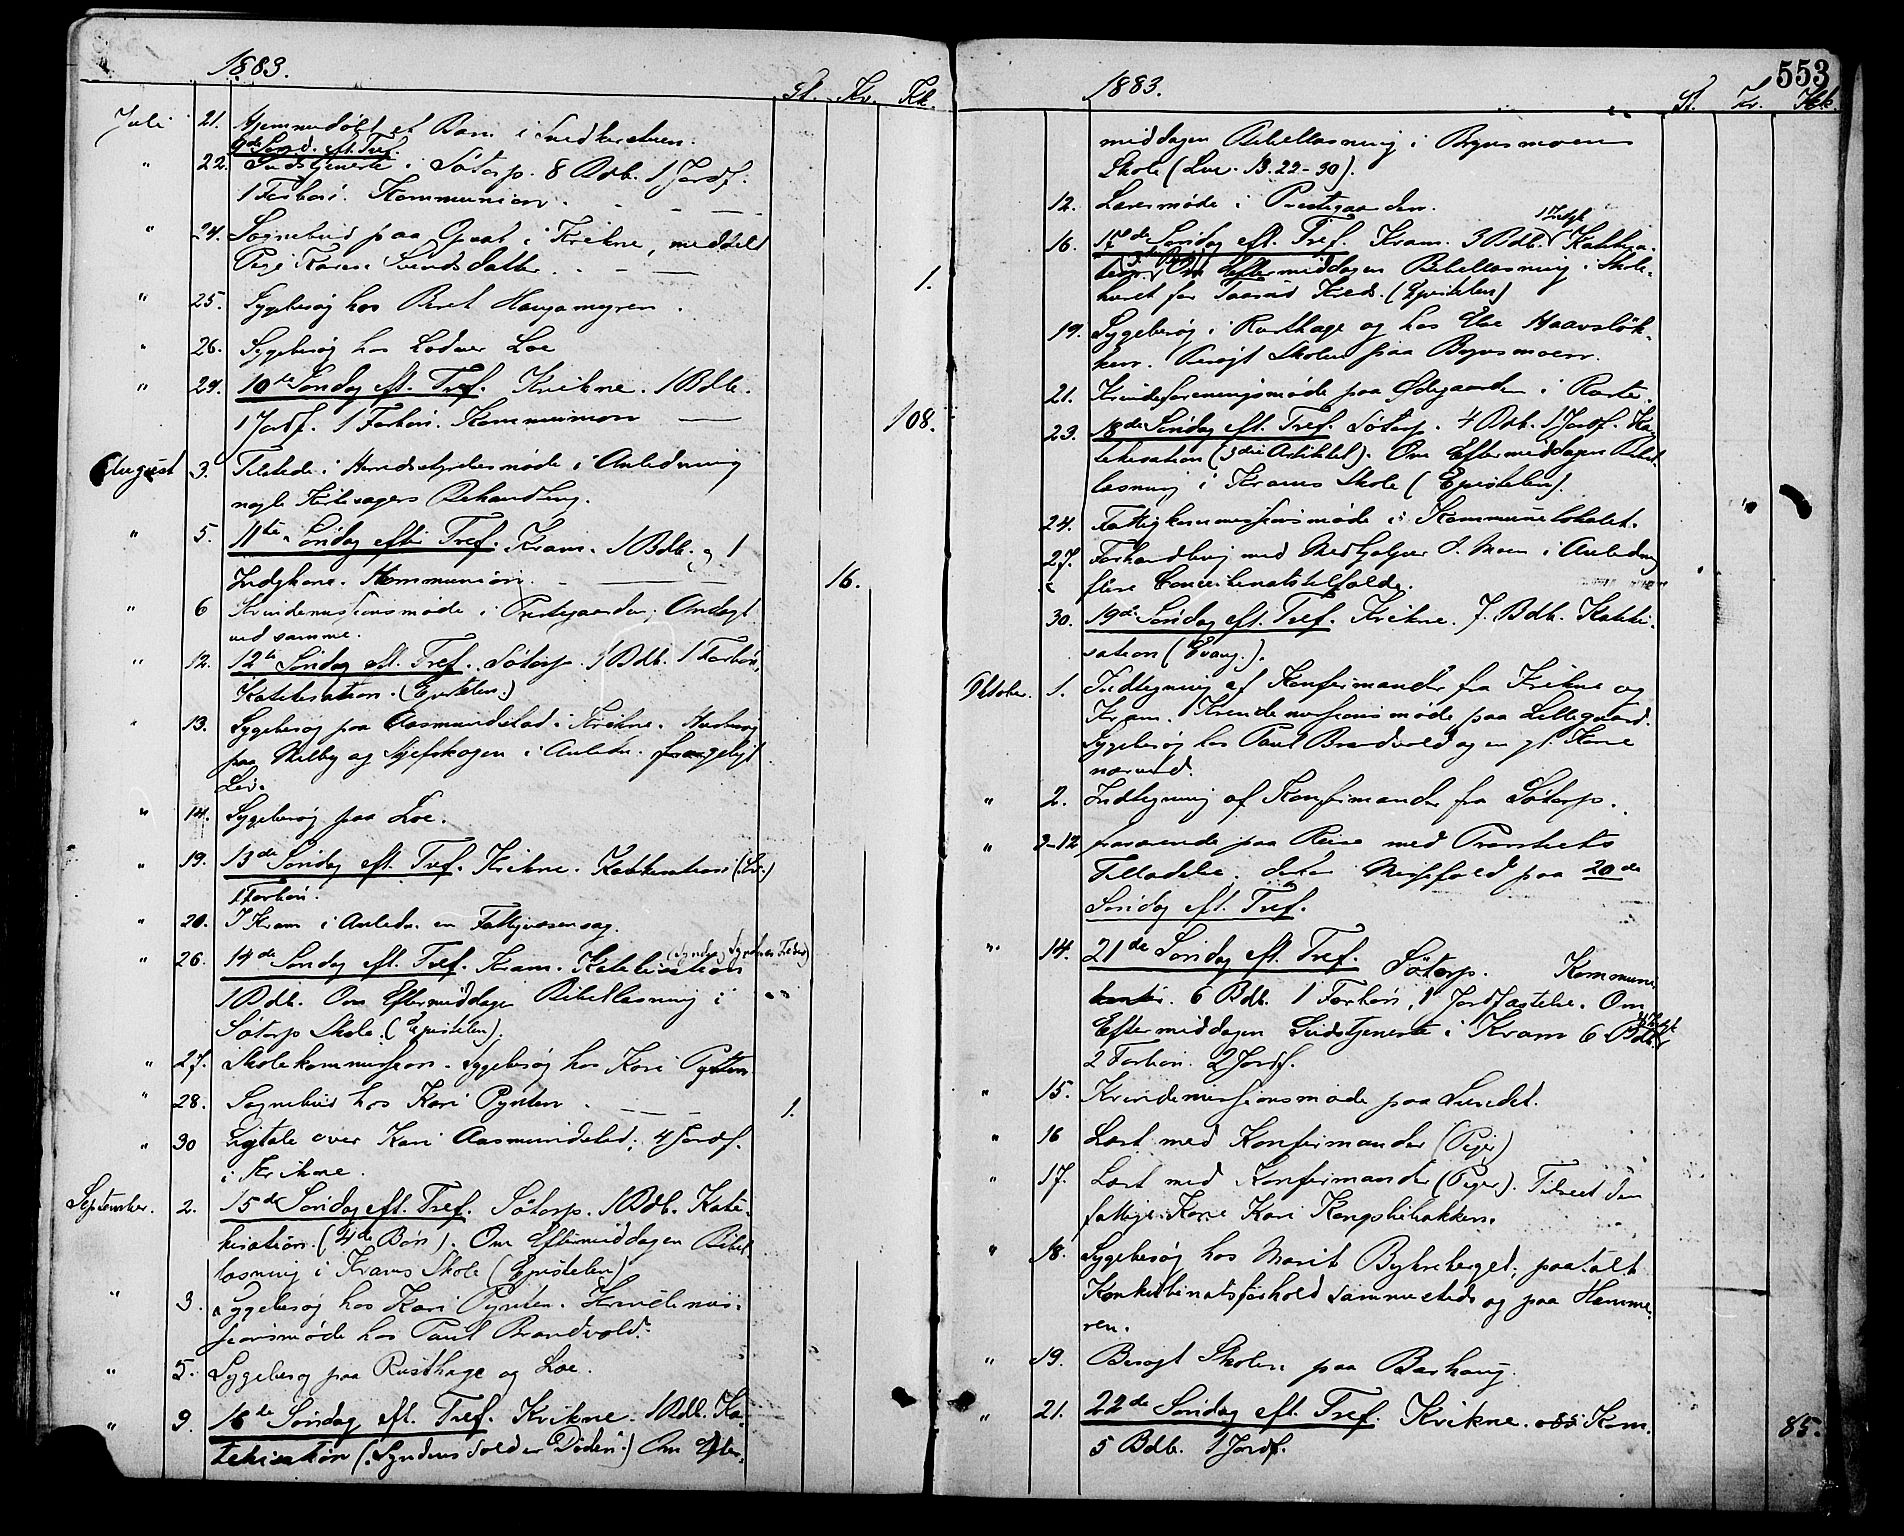 1883.
St. Kv. Kk.
Juli 21. Hjemmedøbt et Barn i Sødkirketuen.
9de Sønd. eft. Tref.
" 22. Gudstjeneste i Sötorp. 8 Bdb. 1 Jordf.
1 Forhör. Kommunion. - - -
" 24. Sognebud paa i Kvikne, meddelt
Pige Karen Svendsdatter. - - - 1.
" 25. Sygebesøg hos Beret Haugamyren.
" 26. Sygebesøg hos Loe
" 29. 10de Søndag eft. Tref. Kvikne. 1 Bdb.
1 Jordf. 1 Forhör. Kommunion — 108.
August 3. Tilstede i Herredsstyrelsesmøde i Anledning
nogle Kirkesagers Behandling.
" 5. 11te Søndag efter Tref. Fram. 1 Bdb. og 1
Indgkone. Kommunion. - — — 16.
" 6 Kvindemissionsmøde i Prestegaarden; Andagt
ved samme.
" 12. 12te Søndag eft. Tref. Sötorp. 1 Bdb. 1 Forhör,
Katekisation. (Epistelen.)
" 13. Sygebesøg paa Aasmundstad i Kvikne. Husbesøg
paa Melby og i Anledn. forargeligt
Liv.
" 14. Sygebesøg paa Loe.
" 19. 13de Søndag eft. Tref. Kvikne. Katekisation
1 Forhör.
" 20. I Fram i Anledn. en Fattigvæsensag.
" 26. 14de Søndag eft. Tref. Fram. Katekisation
1 Bdb. Om Eftermiddagen Bibellæsning i
Sötorp Skole. (Epistelen).
" 27. Skolekommission. Sygebesøg hos Kari Pynten
" 28. Sognebud hos Kari Pynten - — — 1.
" 30 Ligtale over Kari Aasmundstad; 4 Jordf.
i Kvikne.
September. 2. 15de Søndag eft. Tref. Sötorp. 1 Bdb. Kate-
kisation. (4de Bön). Om Eftermiddagen Bibel-
læsning i Frams Skole (Epistelen)
" 3. Sygebesøg hos Kari Pynten. Kvindemis-
sionsmøde hos Paul Brandvold.
" 5. Sygebesøg paa Rusthage og Loe.
" 9. 16de Søndag eft. Tref. Kvikne. 1 Bdb. Ka-
tekisation (Syndens Sold er Döden.) Om Efter-
553
1883.
St. Kv. Kk.
middagen Bibellæsning i Byvsmoens
Skole (Luc. 13.22-30).
12. Læresmøde i Prestegaarden.
1 Indgk
16. 17de Søndag eft. Tref. Fram. 3 Bdb. Katekisa-
tion. (5te Bön) Om Eftermiddagen Bibellæsning i Skole-
huset for Kreds. (Epistelen)
19. Sygebesøg i Rusthage og hos Haavslök-
ken. Besøgt Skolen paa Byvsmoen.
21. Kvindeforeningsmøde paa Ødegaarden i Roste.
23. 18de Søndag eft. Tref. Sötorp. 4 Bdb. 1 Jordf. Ka-
tekisation (3die Artikkel). Om Eftermiddagen Bibel-
læsning i Frams Skole (Epistelen).
24. Fattigkommissionsmøde i Kommunelokalet.
27. Forhandling med Medhjælper O. Moen i Anledning
flere Concubinatstilfælde.
30. 19de Søndag eft. Tref. Kvikne. 7. Bdb. Kateki-
sation (Evang.).
Oktober. 1. Indtegning af Konfirmander fra Kvikne og
Fram. Kvindemissionsmøde paa Lillegaard.
Sygebesøg hos Paul Brandvold og en gl. Kone
nærved.
" 2. Indtegning af Konfirmander fra Sötorp.
" 3-12 fraværende paa Reise med Provstiets
Tilladelse. Messefald paa 20de
Søndag eft. Tref.
" 14. 21de Søndag eft. Tref. Sötorp. Kommuni-
kanter. 6 Bdb. 1 Forhör, 1 Jordfæstelse. Om
Eftermiddagen Gudstjeneste i Fram 6 Bdb.
2 Forhör. 2 Jordf.
" 15. Kvindemissionsmøde paa Sundet.
" 16 Læst med Konfirmander (Piger)
" 17. Læst med Konfirmander (Piger). Tilseet den
fattige Kone Kari Kongslibakken.
" 18. Sygebesøg hos Marit Bykreberget; paatalt
Konkubinatsforhold sammesteds og paa Hamme-
ren.
" 19. Besøgt Skolen paa Barhaug.
" 21. 22de Søndag eft. Tref. Kvikne. Kom. 85.
5 Bdb. 1 Jordf.